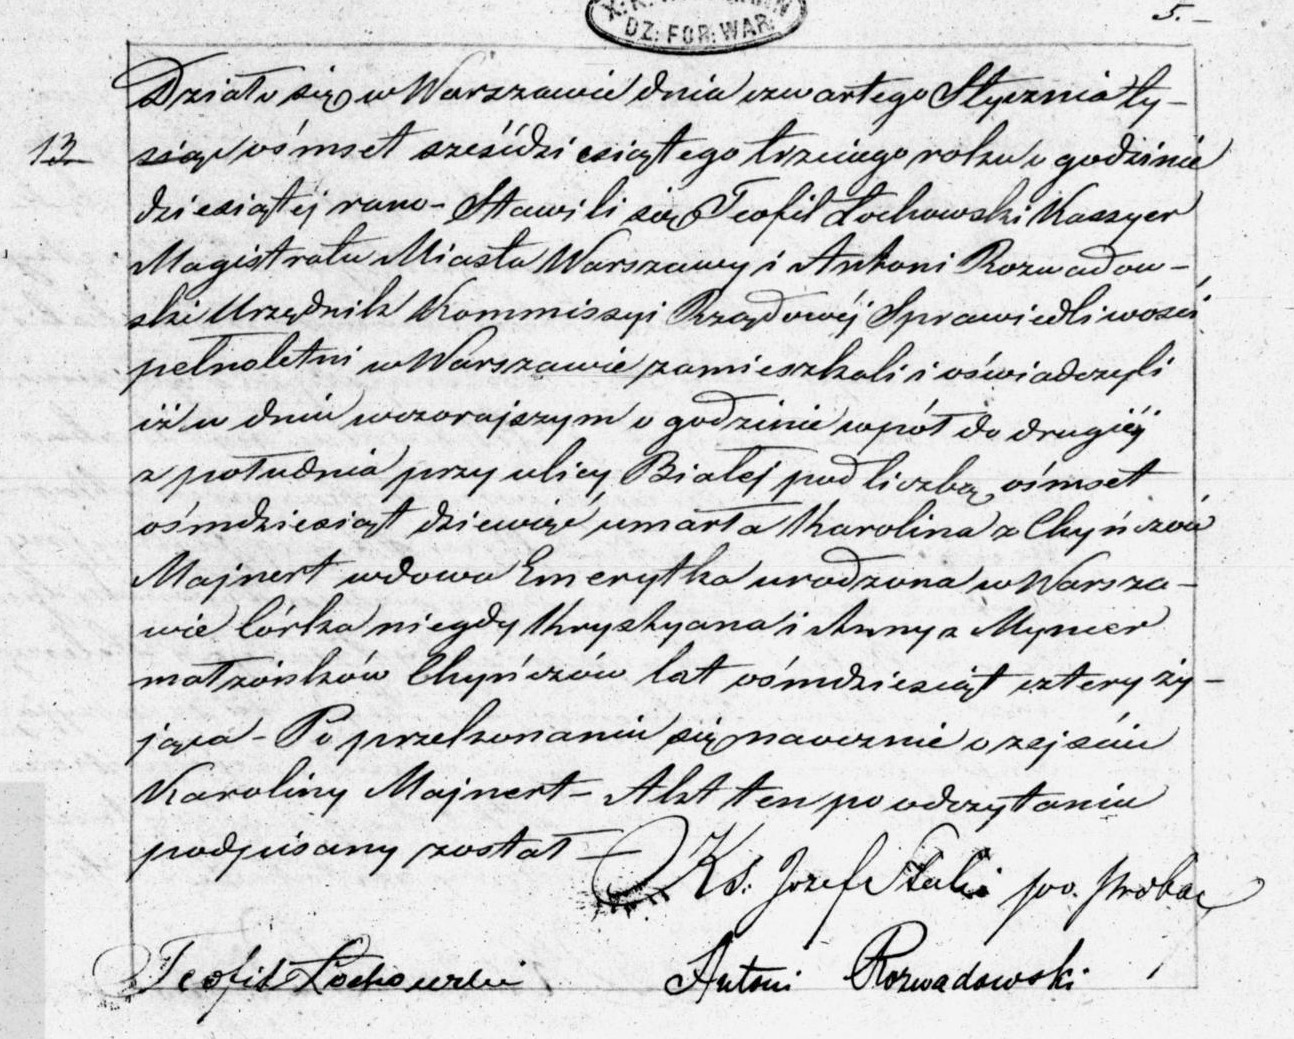 5.
DZ: FOR: WAR:
Działo się w Warszawie dnia czwartego Stycznia ty-
13 siąc ośmset sześćdziesiątego trzeciego roku o godzinie
dziesiątej rano - Stawili się Teofil Łochowski Kassyer
Magistratu Miasta Warszawy i Antoni Rozwadow-
ski Urzędnik Kommissyi Rządowéj Sprawiedliwości
pełnoletni w Warszawie zamieszkali i oświadczyli
iż w dniu wczorajszym o godzinie wpół do drugiéj
z południa przy ulicy Białej pod liczbą ośmset
ośmdziesiąt dziewięć umarła Karolina z Chyńczów
Majnert wdowa Emerytka urodzona w Warsza-
wie Córka niegdy Krystyana i Anny z Mynier
małżonków Chyńczów lat ośmdziesiąt cztery ży-
jąca - Po przekonaniu się naocznie o zejściu
Karoliny Majnert - Akt ten po odczytaniu
podpisany został -
Ks. Jozef
Teofil Łochowski Antoni Rozwadowski